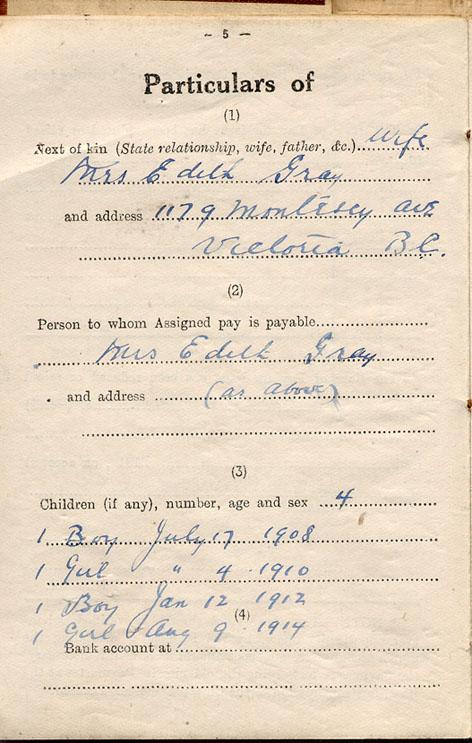 - 5 -
Particulars of
(1)
Next of kin (State relationship, wife, father, &c.)....wife
Mrs Edith Gray
and address 1179 Monterey ave
Victoria B.C.
(2)
Person to whom Assigned pay is payable..............................
Mrs Edith Gray
and address ..........(as above)
(3)
Children (if any), number, age and sex ...4
1 Boy July 17 1908
1 Girl " 4 1910
1 Boy Jan 12 1912
(4)
1 Girl Aug 9 1914
Bank account at